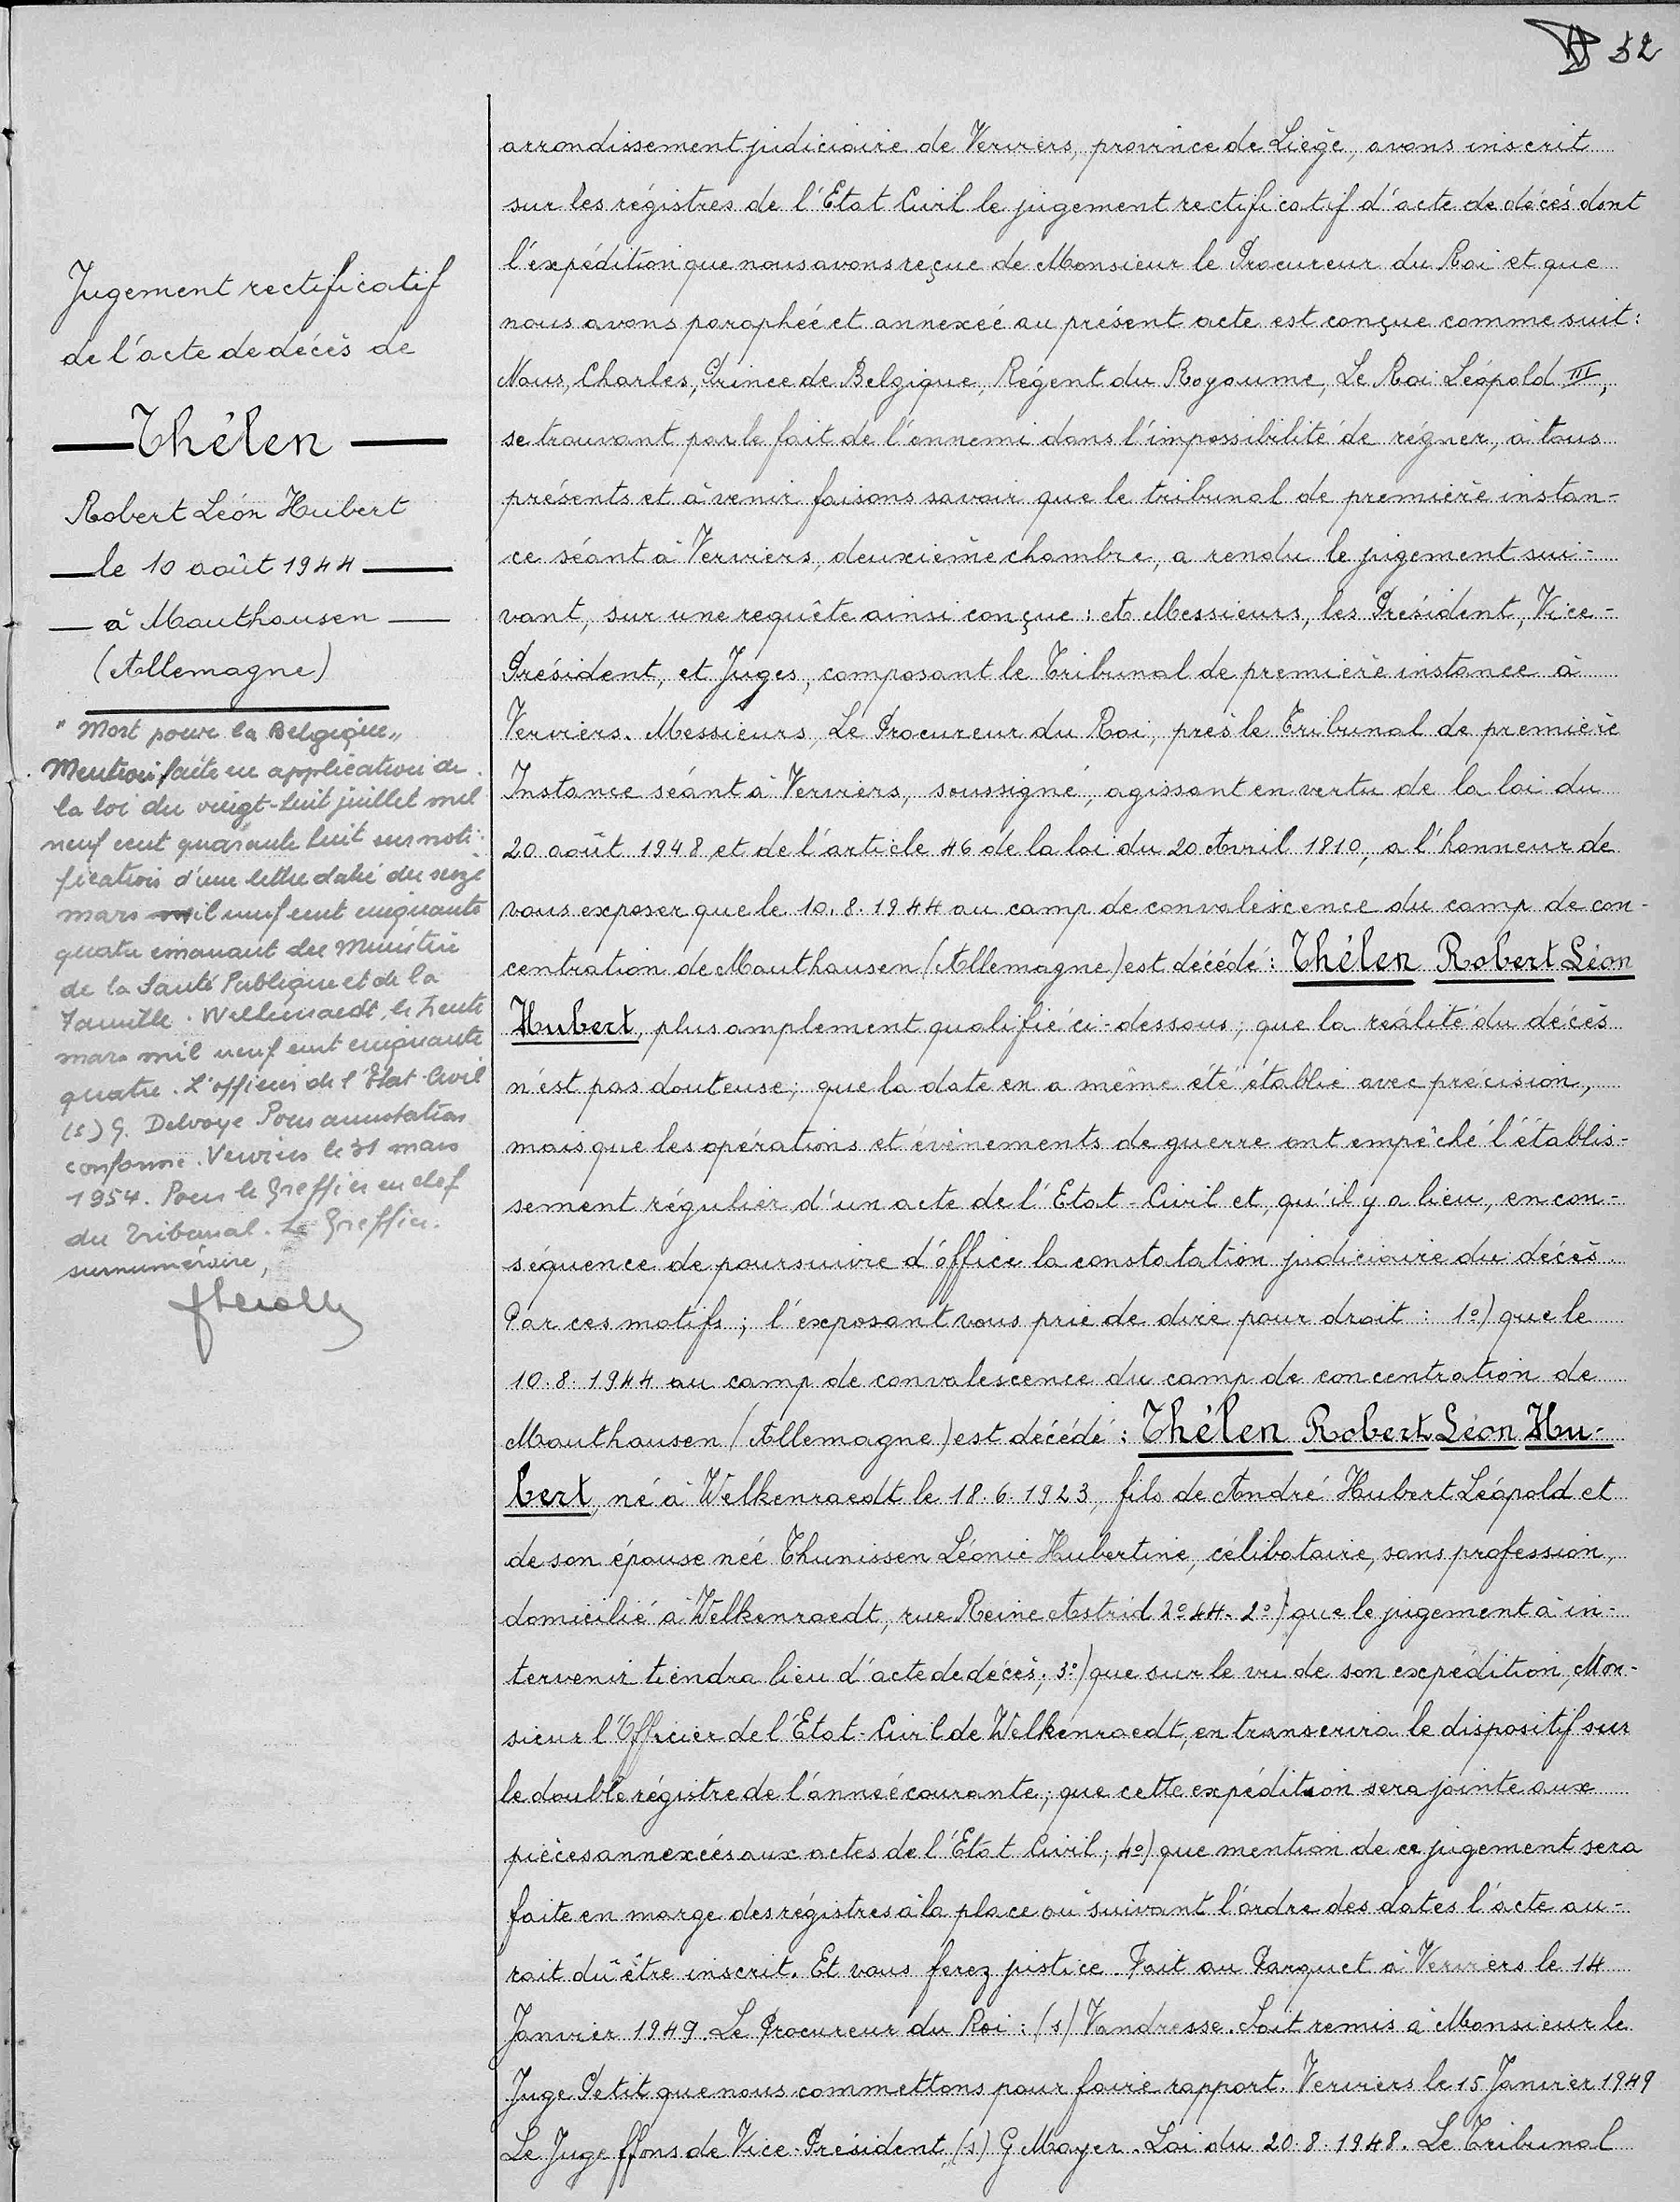 52
Jugement rectificatif
de l'acte de décès de
Thélen
Robert Léon Hubert
le 10 août 1944
à Mauthausen
(Allemagne)
" Mort pour la Belgique "
Mention faite en application de
la loi du vingt-huit juillet mil
neuf cent quarante huit sur noti-
fication d'une lettre datée du seize
mars mil neuf cent cinquante
quatre émanant du Ministère
de la Santé Publique et de la
Famille. Welkenraedt, le trente
mars mil neuf cent cinquante
quatre. L'officier de l'Etat-Civil
(s) G. Delvoye Pour annotation
conforme. Verviers le 31 mars
1954. Pour le Greffier en chef
du Tribunal. Le Greffier
surnuméraire,
arrondissement judiciaire de Verviers, province de Liège, avons inscrit
sur les régistres de l'Etat Civil le jugement rectificatif d'acte de décès dont
l'expédition que nous avons reçue de Monsieur le Procureur du Roi et que
nous avons paraphée et annexée au présent acte est conçue comme suit :
Nous, Charles, Prince de Belgique, Régent du Royaume, Le Roi Léopold III,
se trouvant par le fait de l'ennemi dans l'impossibilité de régner, à tous
présents et à venir faisons savoir que le tribunal de première instan-
ce séant à Verviers, deuxième chambre, a rendu le jugement sui-
vant, sur une requête ainsi conçue : A Messieurs, les Président, Vice-
Président, et Juges, composant le Tribunal de première instance à
Verviers. Messieurs, Le Procureur du Roi, près le Tribunal de première
Instance séant à Verviers, soussigné, agissant en vertu de la loi du
20 août 1948 et de l'article 46 de la loi du 20 Avril 1810, a l'honneur de
vous exposer que le 10.8.1944 au camp de convalescence du camp de con-
centration de Mauthausen (Allemagne) est décédé : Thélen Robert Léon
Hubert, plus amplement qualifié ci-dessous ; que la réalité du décès
n'est pas douteuse ; que la date en a même été établie avec précision,
mais que les opérations et évènements de guerre ont empêché l'établis-
sement régulier d'un acte de l'Etat-Civil et, qu'il y a lieu, en con-
séquence de poursuivre d'office la constatation judiciaire du décès
Par ces motifs ; l'exposant vous prie de dire pour droit : 1°) que le
10.8.1944 au camp de convalescence du camp de concentration de
Mauthausen (Allemagne) est décédé : Thélen Robert Léon Hu-
bert, né à Welkenraedt le 18.6.1923, fils de André Hubert Léopold et
de son épouse née Thunissen Léonie Hubertine, célibataire, sans profession,
domicilié à Welkenraedt, rue Reine Astrid 2° 44. 2°) que le jugement à in-
tervenir tiendra lieu d'acte de décès ; 3°) que sur le vu de son expédition, Mon-
sieur l'Officier de l'Etat-Civil de Welkenraedt, en transcrira le dispositif sur
le double régistre de l'année courante ; que cette expédition sera jointe aux
pièces annexées aux actes de l'Etat Civil ; 4°) que mention de ce jugement sera
faite en marge des régistres à la place où suivant l'ordre des dates l'acte au-
rait dû être inscrit. Et vous ferez justice. Fait au Parquet à Verviers le 14
Janvier 1949. Le Procureur du Roi : (s) Vandresse. Soit remis à Monsieur le
Juge Petit que nous commettons pour faire rapport. Verviers le 15 Janvier 1949
Le Juge ffons de Vice-Président, (s) G Mayer. Loi du 20.8.1948. Le Tribunal